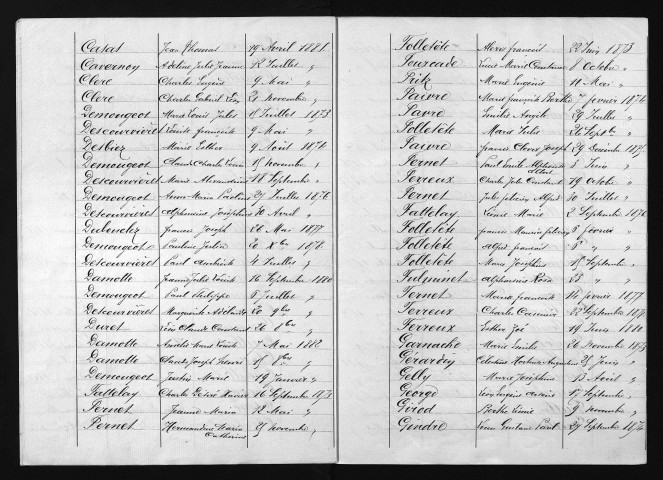 Casat Jean Thomas 19 Avril 1881
Cavernoy Adeline Julie Jeanne 12 Juillet "
Clerc Charles Eugène 9 Mai "
Clerc Charles Gabriel 21 novembre "
Demougeot Marie Louis Jules 15 Juillet 1873
Descourvières Louise françoise 9 Mai "
Desbiez Marie Esther 9 Août 1874
Demougeot Claude Charles 15 novembre "
Descourvières Marie Alexandrine 18 Septembre "
Demougeot Anne Marie 27 Juillet 1876
Descourvières Alphonsine Joséphine 30 Avril "
francis Joseph 26 Mai 1877
Demougeot Pauline Julia 20 Xbre 1878
Descourvières Paul 4 Juillet "
Damotte Jeanne Julie Louise 16 Septembre 1880
Demougeot Paul Philippe 5 Juillet "
Descourvières Marguerite Adelaide 20 9bre "
Duret Léon Claude Constant 26 8bre "
Damotte Marie Louise 7 Mai 1882
Damotte Claude Joseph Henri 15 8bre "
Demougeot Justin Marie 19 Janvier "
Fattelay Charles Désiré Xavier 16 Septembre 1873
Pernet Jeanne Maria 12 Mai "
Pernet Hermandine Maria Catherine 25 novembre "
Folletête Alexis françois 22 Juin 1873
Fourcade Louis Marie Constance 1 Octobre "
Marie Eugénie 11 Mai "
Faivre Marie françoise Berthe 7 février 1874
Favre Emilie Angèle 29 Juillet "
Folletête Marie Julie 26 Septbre "
Faivre francis Clovis Joseph 29 Décembre 1875
Pernet Paul Emile Alphonse Albert 3 Juin "
Perreux Charles Jules Constant 19 Octobre "
Pernet Jules Alfred 30 Juillet "
Fattelay Louise Marie 2 Septembre 1876
Folletête francis Maurice 5 février "
Folletête Alfred françois 5 " "
Folletête Marie Joséphine 15 Septembre "
Alphonsine Rosa 23 " "
Fernet Maria françoise 14 février 1877
Ferreux Charles Casimir 22 Septembre 1878
Ferreux Esther Zoé 19 Juin 1880
Garnache Marie Emilie 26 Novembre 1873
Gérardin Célestine Hortense Augustine 25 Juin "
Gelly Marie Joséphine 13 Avril "
George Léon Eugène 17 Septembre "
Girod Berthe Louise 9 novembre "
Gindre Léon Gustave Paul 27 Septembre 1874